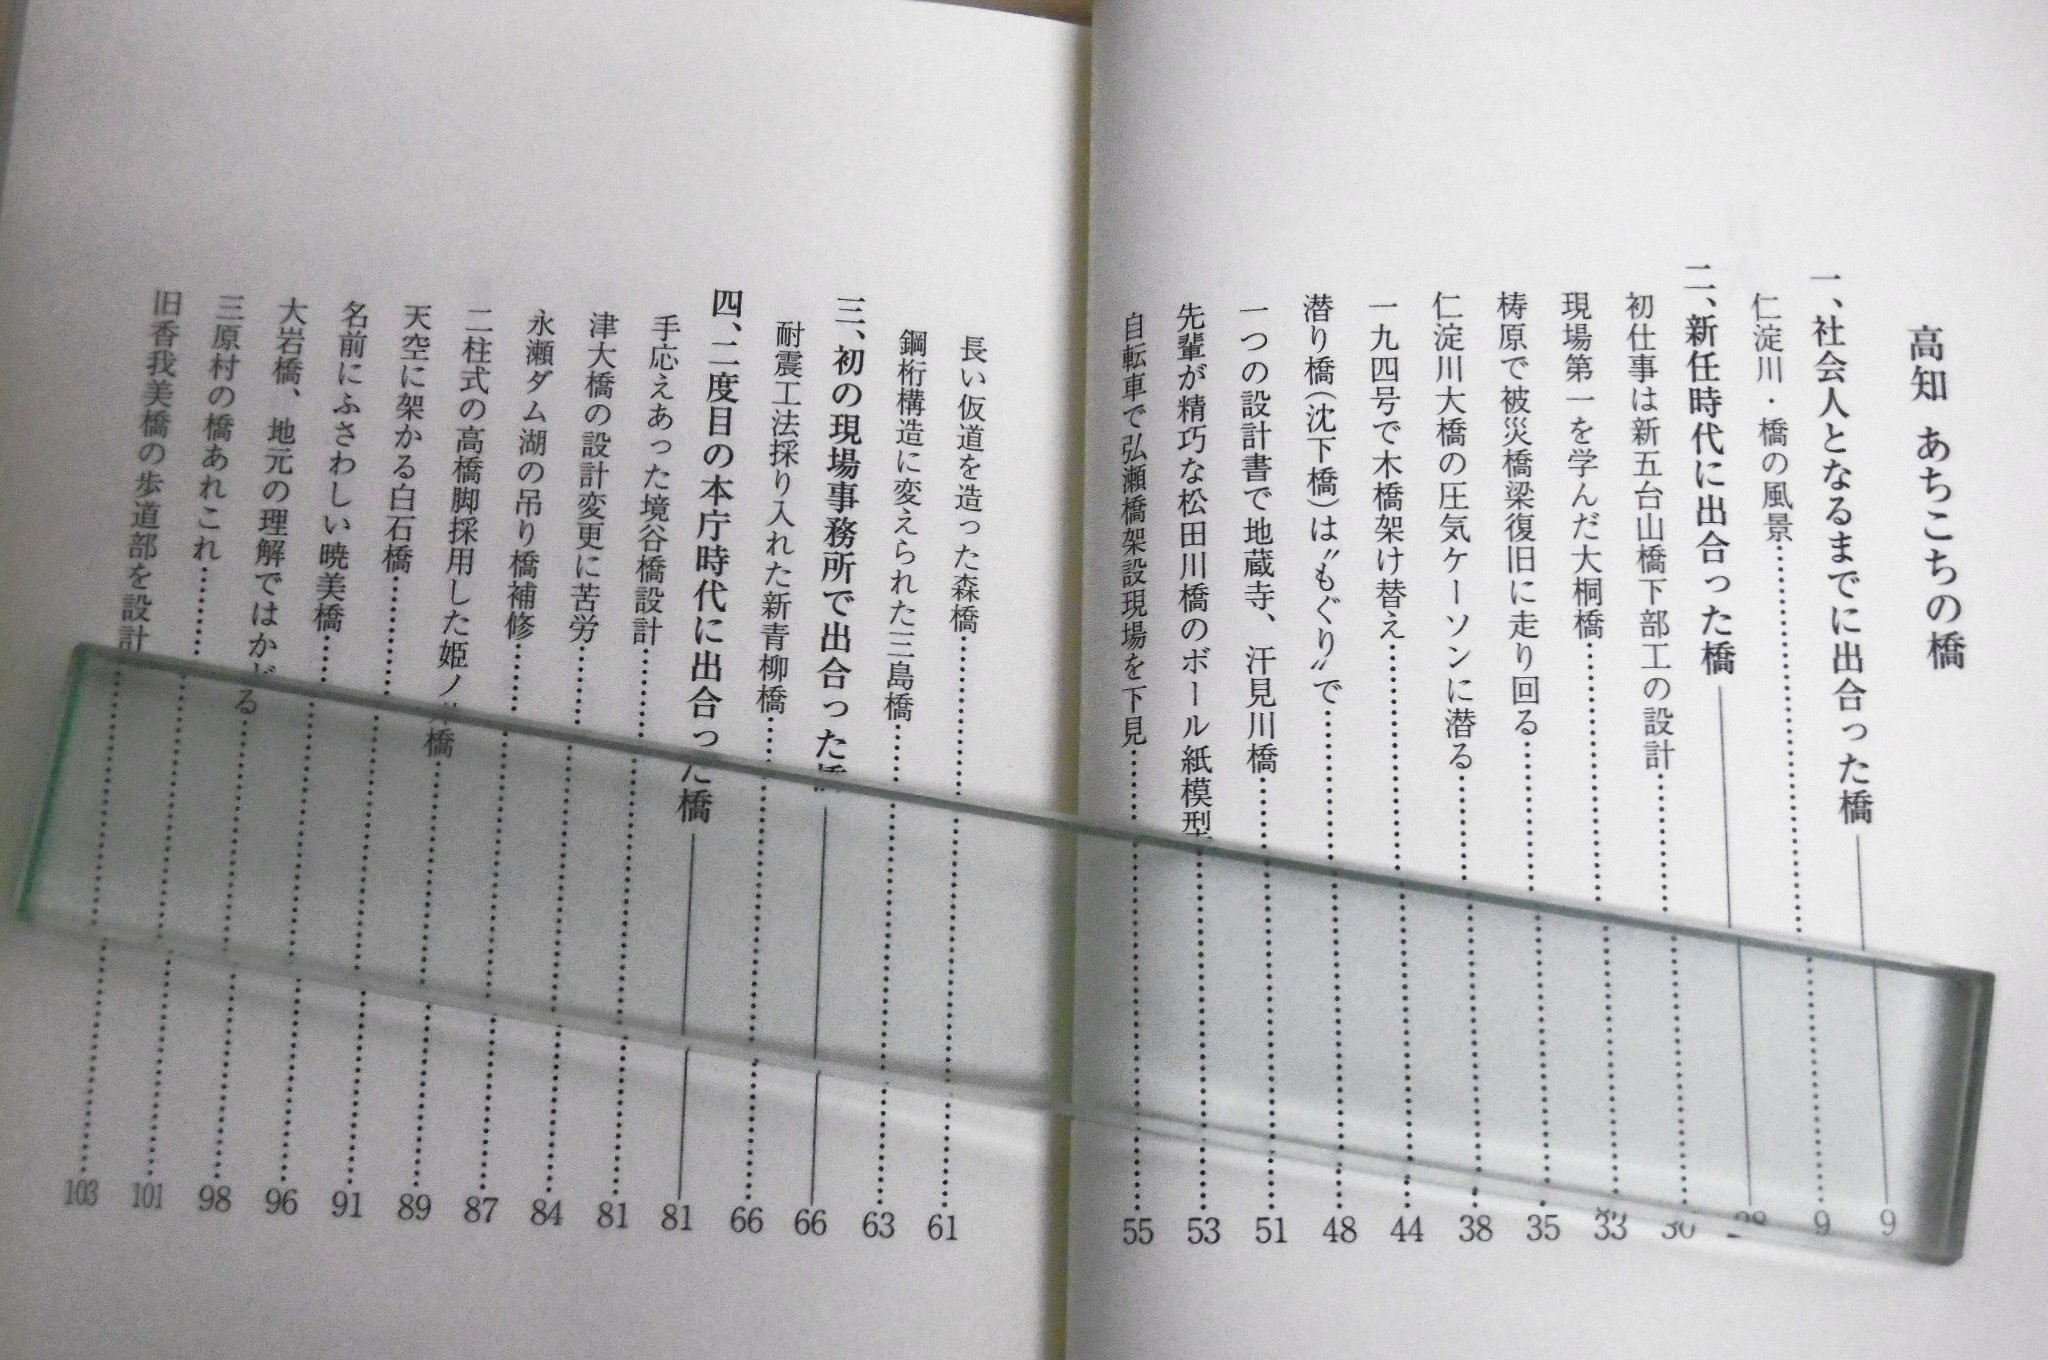 高知 あちこちの橋
一、社会人となるまでに出合った橋 9
仁淀川・橋の風景 9
二、新任時代に出合った橋 28
初仕事は新五台山橋下部工の設計 30
現場第一を学んだ大桐橋 33
梼原で被災橋梁復旧に走り回る 35
仁淀川大橋の圧気ケーソンに潜る 38
一九四号で木橋架け替え 44
潜り橋(沈下橋)は〝もぐり〟で 48
一つの設計書で地蔵寺、汗見川橋 51
先輩が精巧な松田川橋のボール紙模型 53
自転車で弘瀬橋架設現場を下見 55
長い仮道を造った森橋 61
鋼桁構造に変えられた三島橋 63
三、初の現場事務所で出合った橋 66
耐震工法採り入れた新青柳橋 66
四、二度目の本庁時代に出合った橋 81
手応えあった境谷橋設計 81
津大橋の設計変更に苦労 84
永瀬ダム湖の吊り橋補修 87
二柱式の高橋脚採用した姫ノ井橋 89
天空に架かる白石橋 91
名前にふさわしい暁美橋 96
大岩橋、地元の理解ではかどる 98
三原村の橋あれこれ 101
旧香我美橋の歩道部を設計 103